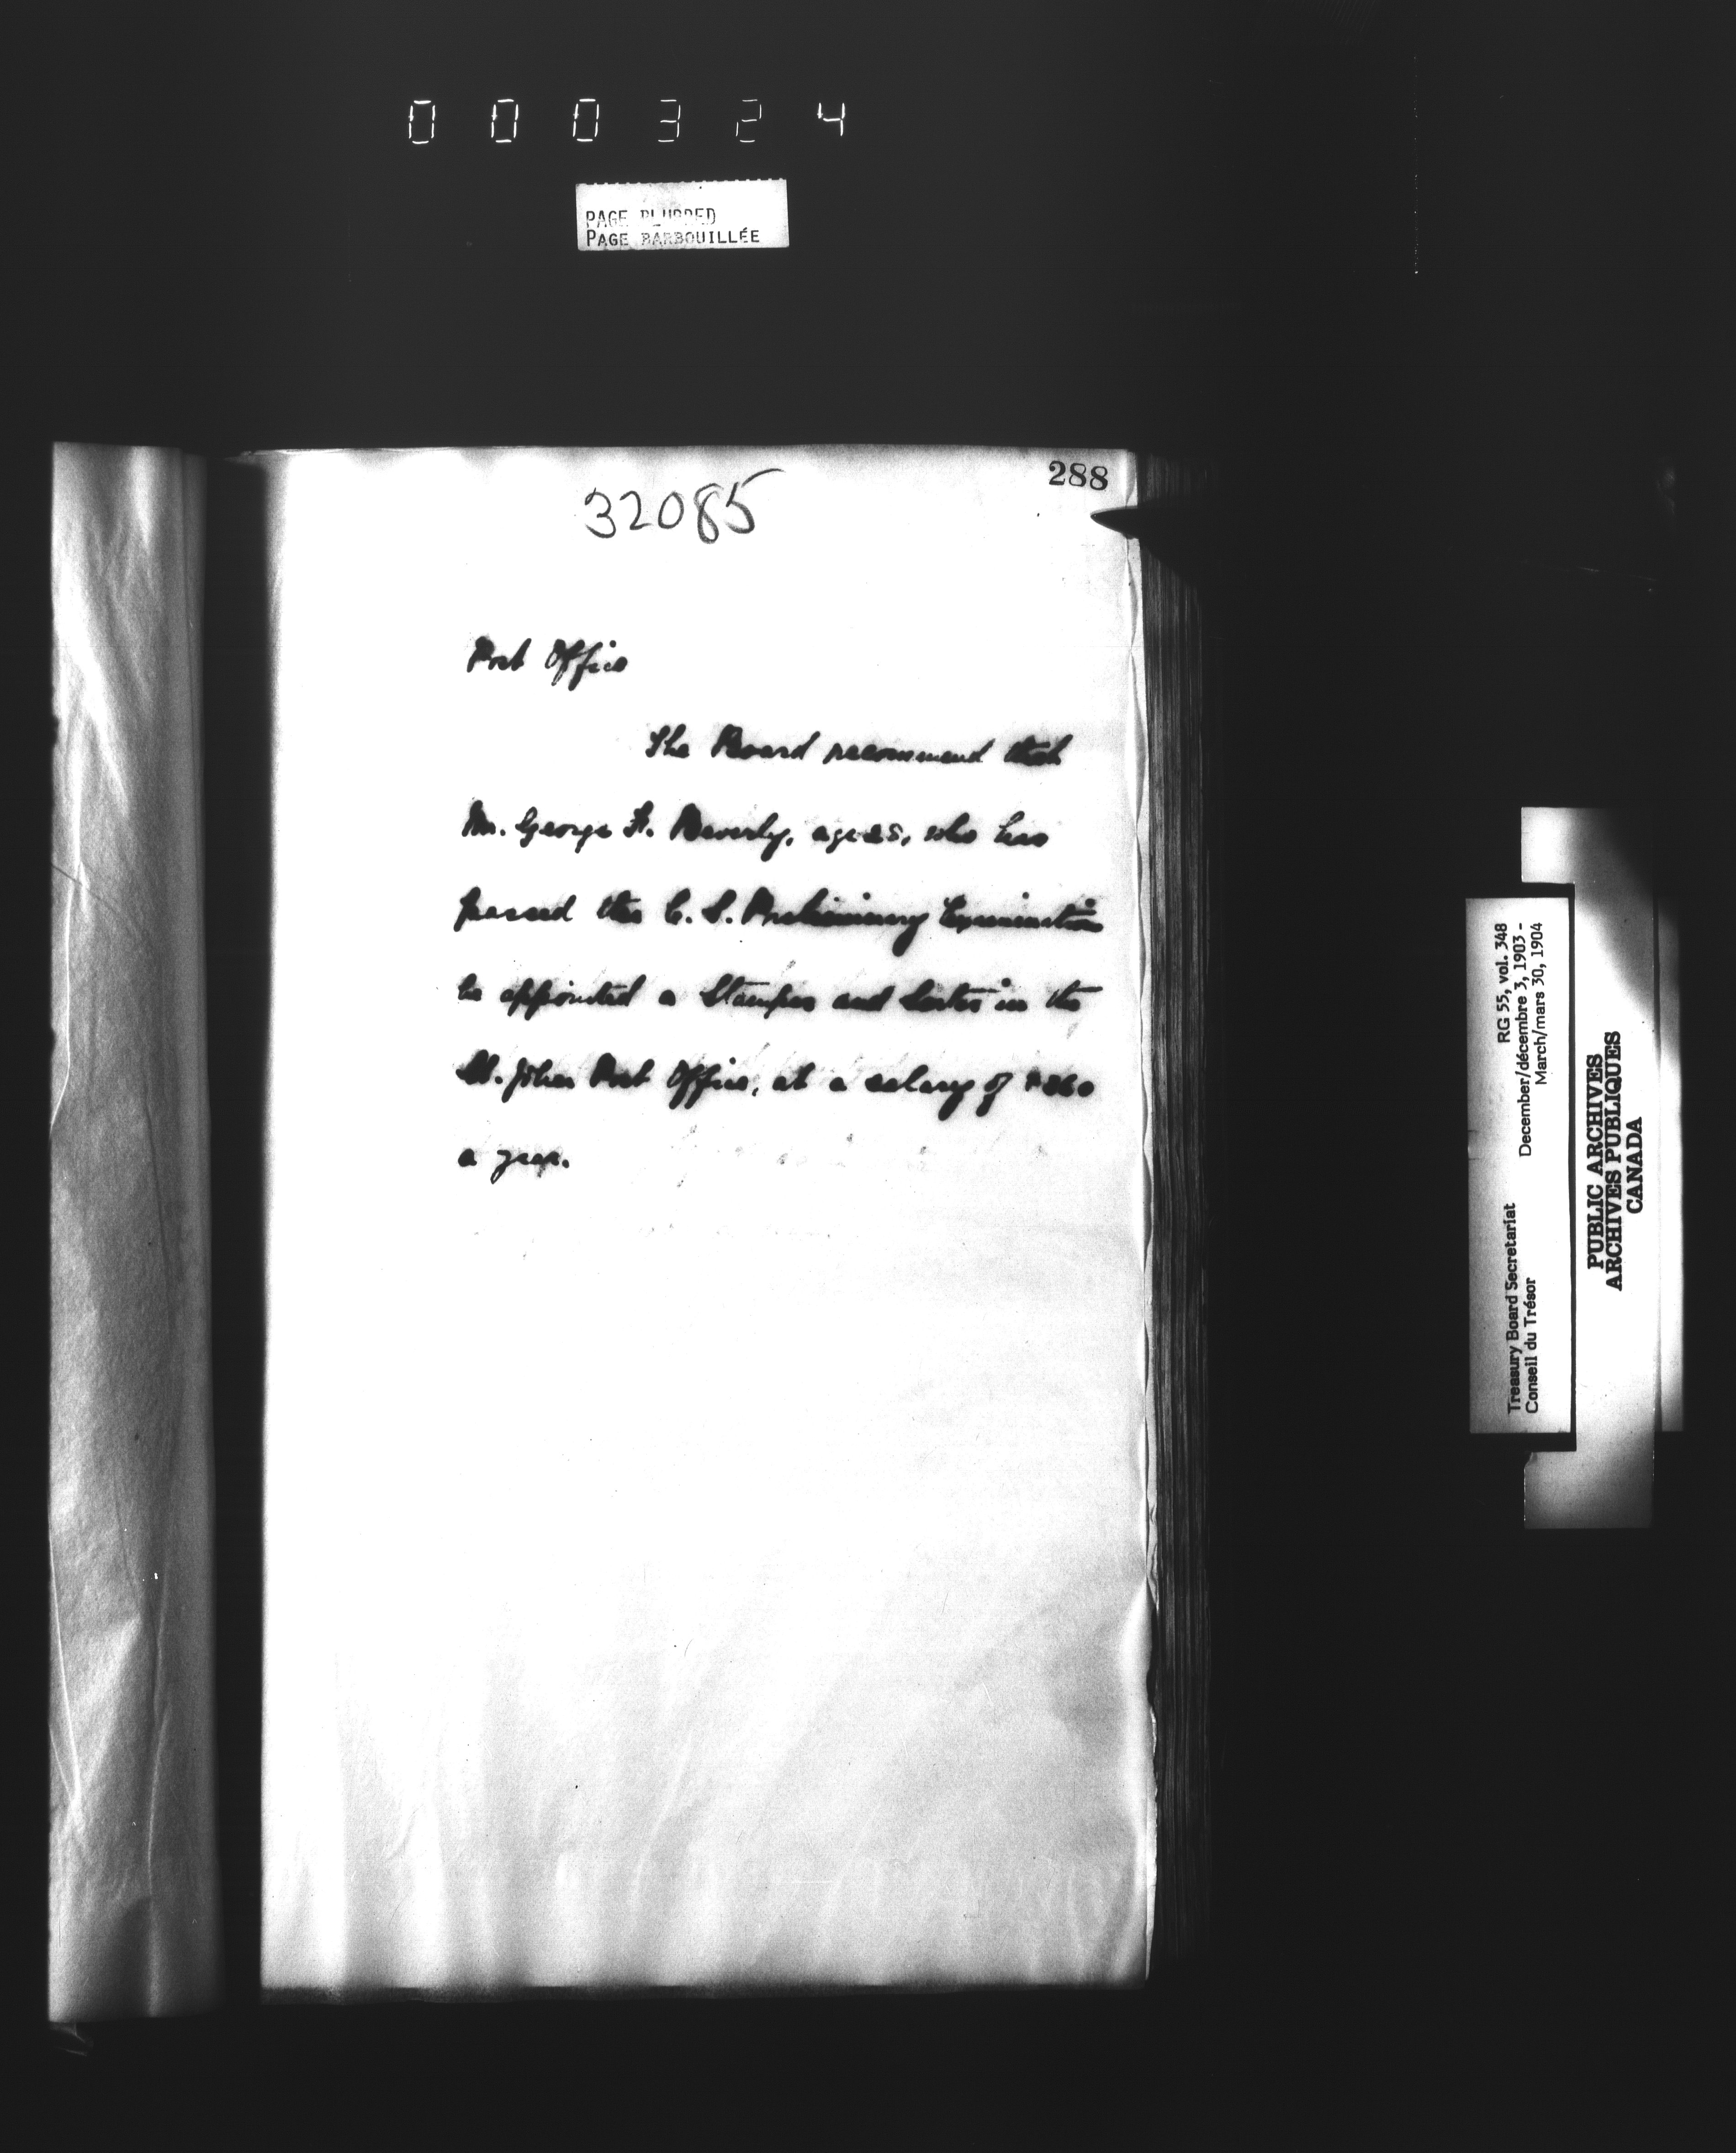 000324
PAGE BLURRED
PAGE BARBOUILLÉE
288
32085
Post Office
The Board recommend that
Mr. George F. Beverly, age 25, who has
passed the C. S. Preliminary Examination
be appointed a Stamper and Sorter in the
St. John Post Office, at a salary of $360
a year.
RG 55, vol. 348
December/décembre 3, 1903 -
March/mars 30, 1904
Treasury Board Secretariat
Conseil du Trésor
PUBLIC ARCHIVES
ARCHIVES PUBLIQUES
CANADA